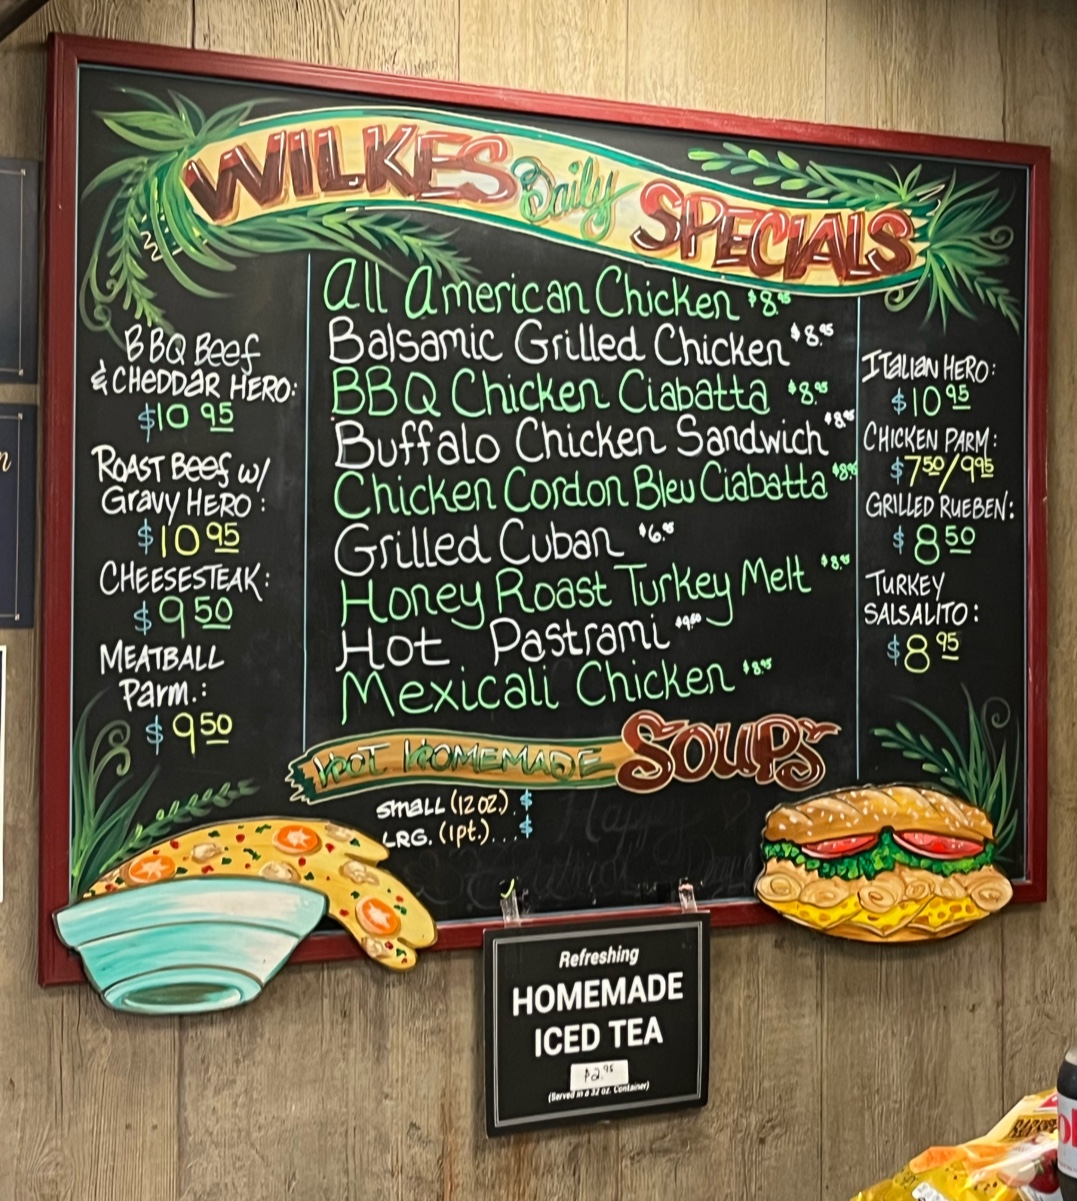 WILKES Daily SPECIALS
BBQ Beef
& CHEDDAR HERO:
$10 95
ROAST BEEF W/
GRAVY HERO:
$10 95
CHEESESTEAK:
$9 50
MEATBALL
Parm.:
$9 50
All American Chicken $8.95
Balsamic Grilled Chicken $8.95
BBQ Chicken Ciabatta $8.95
Buffalo Chicken Sandwich $8.95
Chicken Cordon Bleu Ciabatta $8.95
Grilled Cuban $6.95
Honey Roast Turkey Melt $8.95
Hot Pastrami
Mexicali Chicken $8.95
ITALIAN HERO:
$10 95
CHICKEN PARM:
$7 50/9 95
GRILLED RUEBEN:
$8 50
TURKEY
SALSALITO:
$8 95
HOT HOMEMADE SOUPS
SMALL (12 OZ.). $
LRG. (1pt.)... $
Refreshing
HOMEMADE
ICED TEA
$2.95
(Served in a 32 oz. Container)